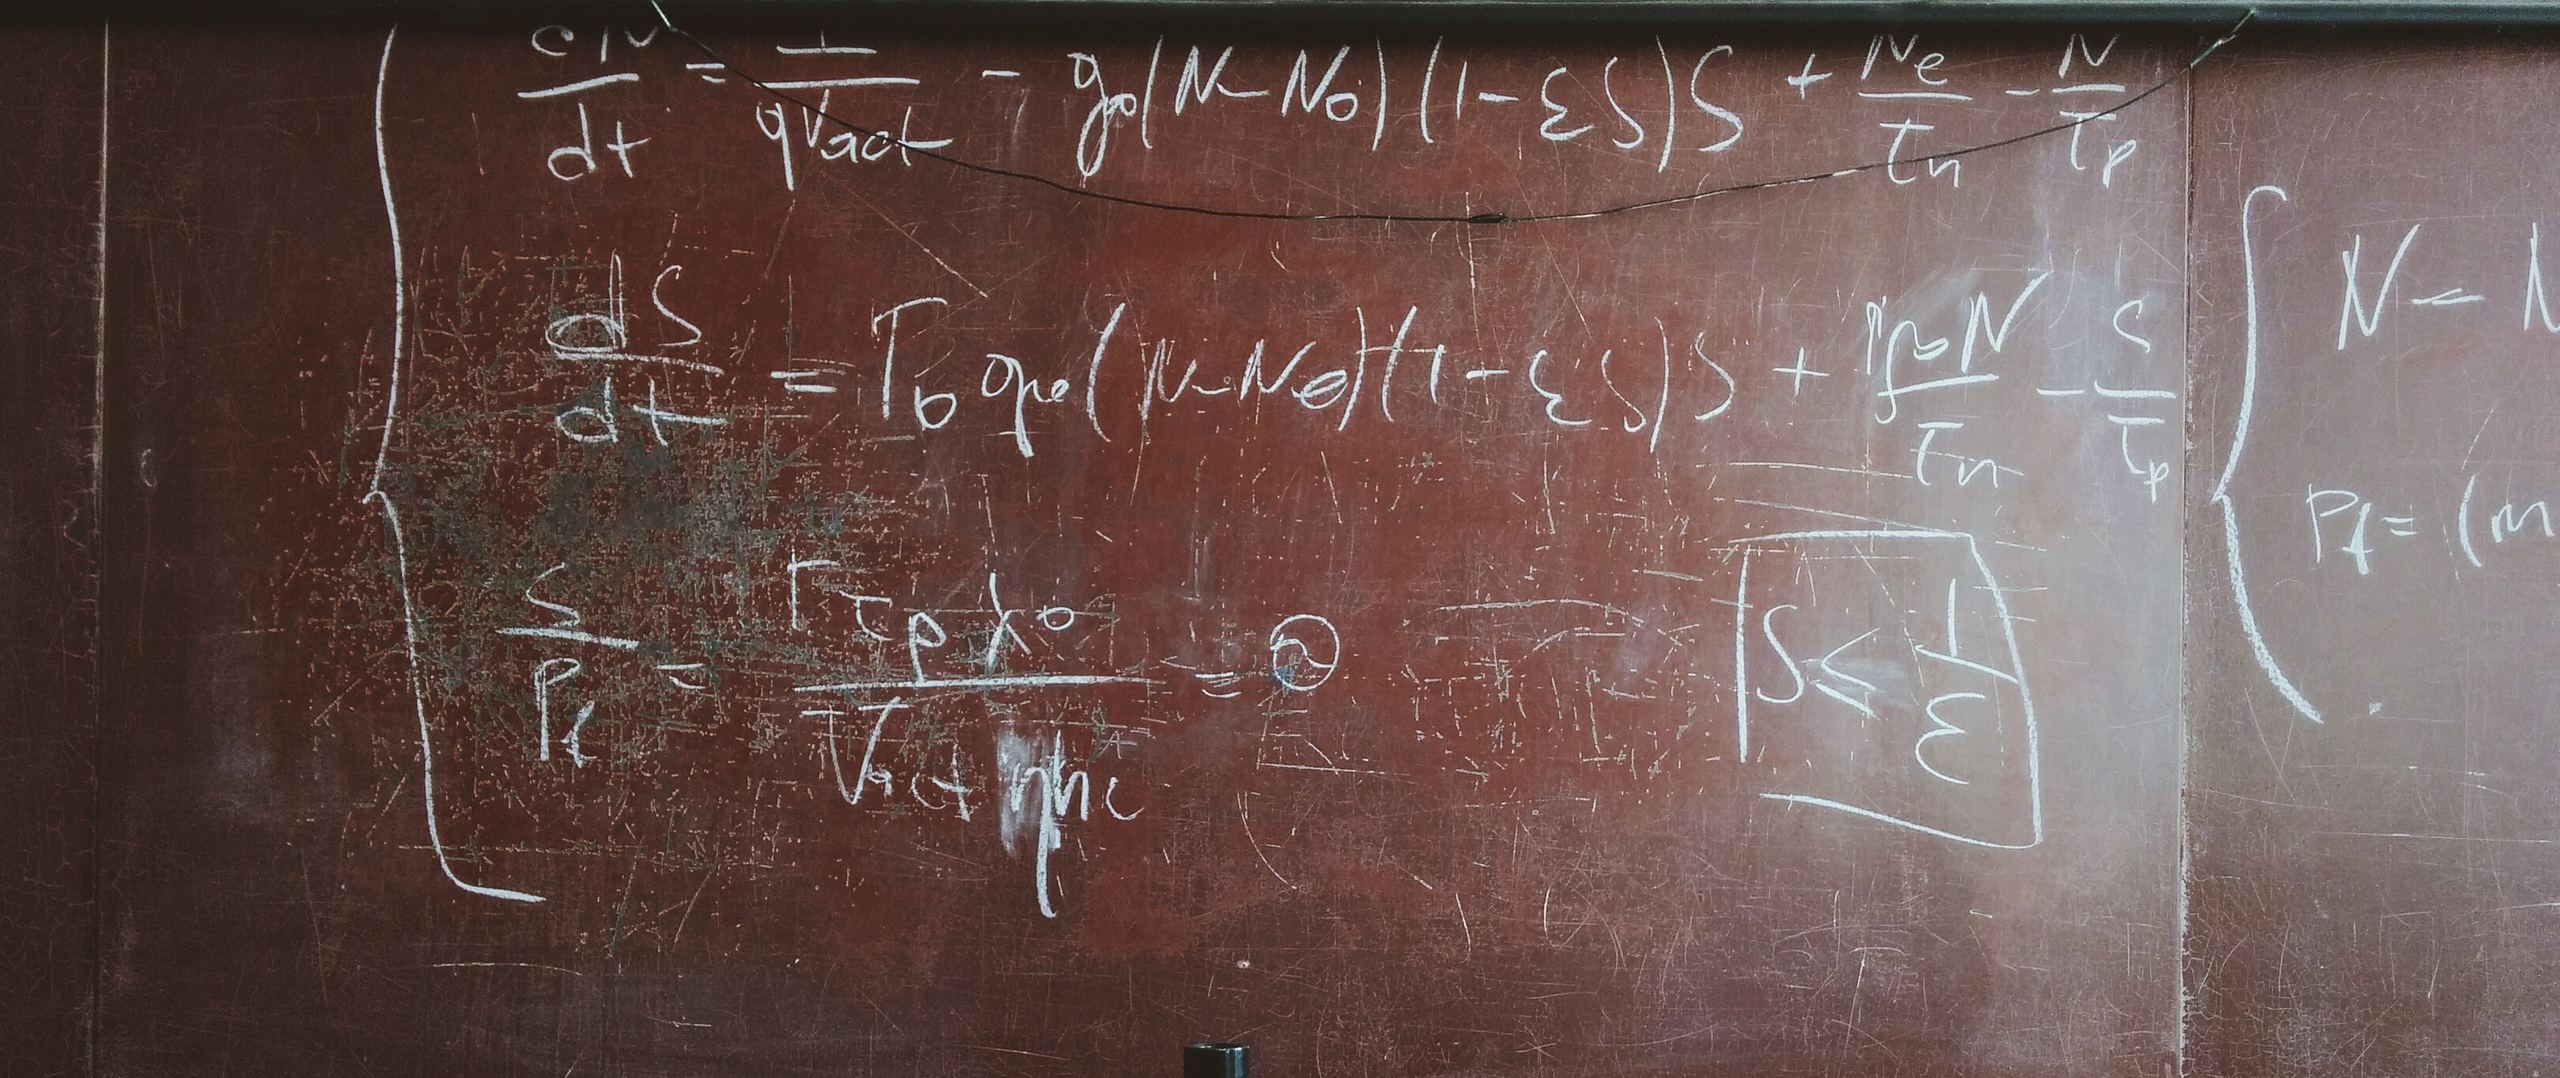 dN/dt = I/qVact - g₀(N-N₀)(1-εS)S + Ne/τn - N/τp
dS/dt = Γ₀g₀(N-N₀)(1-εS)S + ΓβN/τn - S/τp
S/Pf = Γτpλ₀/Vact ηhc = ϑ
S ≤ 1/ε
N = N
Pf = (m